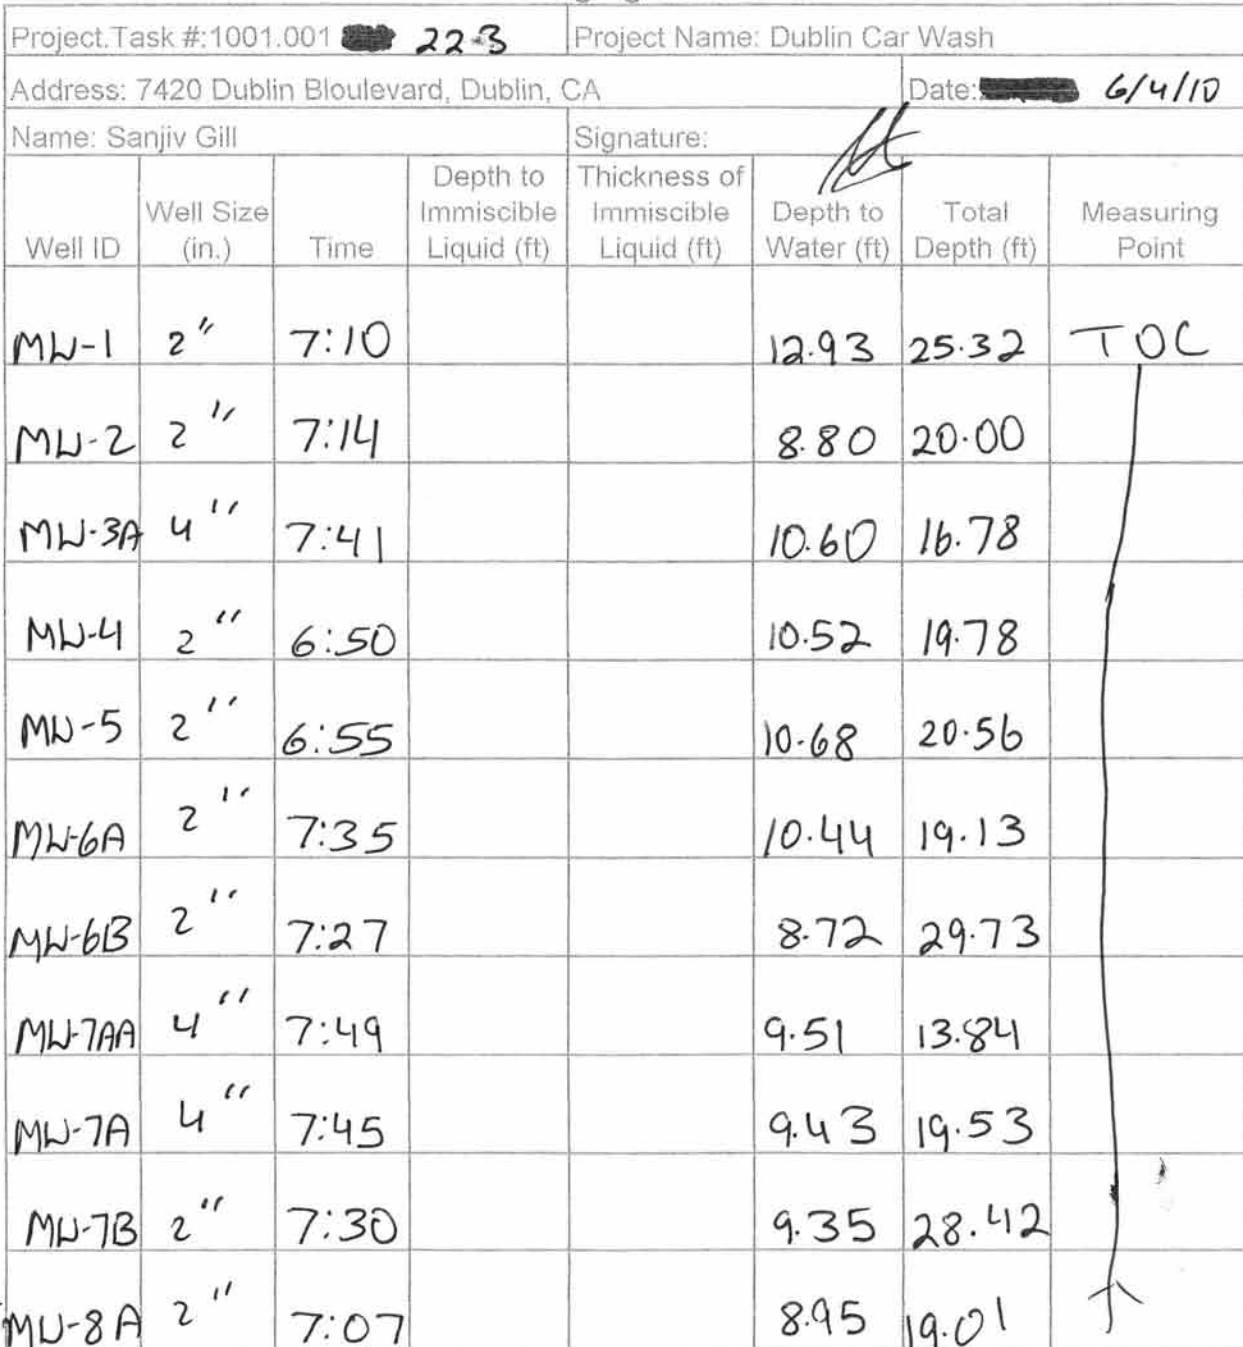 Project.Task #:1001.001 223 Project Name: Dublin Car Wash
Address: 7420 Dublin Bloulevard, Dublin, CA Date: 6/4/10
Name: Sanjiv Gill Signature:
Well ID Well Size (in.) Time Depth to Immiscible Liquid (ft) Thickness of Immiscible Liquid (ft) Depth to Water (ft) Total Depth (ft) Measuring Point
MW-1 2" 7:10 12.93 25.32 TOC
MW-2 2" 7:14 8.80 20.00
MW-3A 4" 7:41 10.60 16.78
MW-4 2" 6:50 10.52 19.78
MW-5 2" 6:55 10.68 20.56
MW-6A 2" 7:35 10.44 19.13
MW-6B 2" 7:27 8.72 29.73
MW-7AA 4" 7:49 9.51 13.84
MW-7A 4" 7:45 9.43 19.53
MW-7B 2" 7:30 9.35 28.42
MW-8A 2" 7:07 8.95 19.01